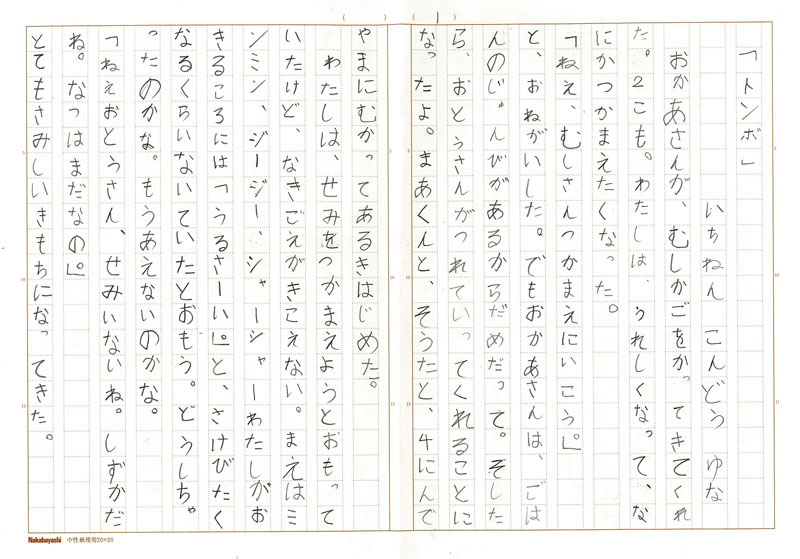 (　1　)
「トンボ」
いちねん　こんどう　ゆな
おかあさんが、むしかごをかってきてくれ
た。2こも。わたしは、うれしくなって、な
にかつかまえたくなった。
「ねえ、むしさんつかまえにいこう。」
と、おねがいした。でもおかあさんは、ごは
んのじゅんびがあるからだめだって。そした
ら、おとうさんがつれていってくれることに
なったよ。まあくんと、そうたと、4にんで
やまにむかってあるきはじめた。
わたしは、せみをつかまえようとおもって
いたけど、なきごえがきこえない。まえはミ
ンミン、ジージー、シャーシャーわたしがお
きるころには「うるさーい。」と、さけびたく
なるくらいないていたとおもう。どうしちゃ
ったのかな。もうあえないのかな。
「ねえおとうさん、せみいないね。しずかだ
ね。なつはまだなの。」
とてもさみしいきもちになってきた。
(　　)
5
10
15
5
10
15
5
10
15
Nakabayashi　中性紙使用20×20